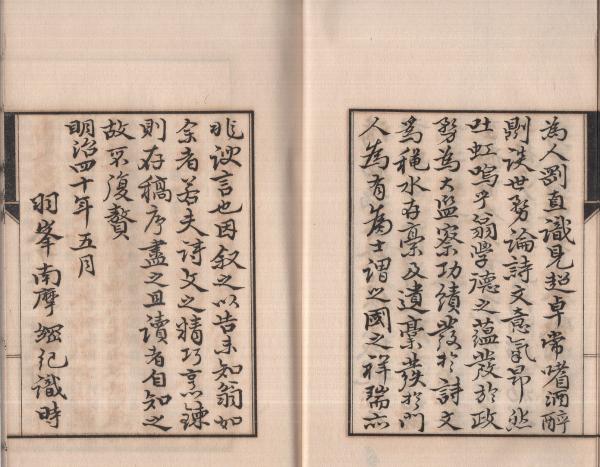 為人剛直識見超卓常嗜酒醉
則談世務論詩文意氣昂然
吐虹嗚乎翁學德之蘊發於政
務為大監察功績發於詩文
為穐水存稾及遺稾發於門
人為有為士謂之國之祥瑞亦
非諛言也因叙之以告未知翁如
余者若夫詩文之精巧烹錬
則存稿序盡之且讀者自知之
故不復贅
明治四十年五月
羽峯南摩綱紀識時